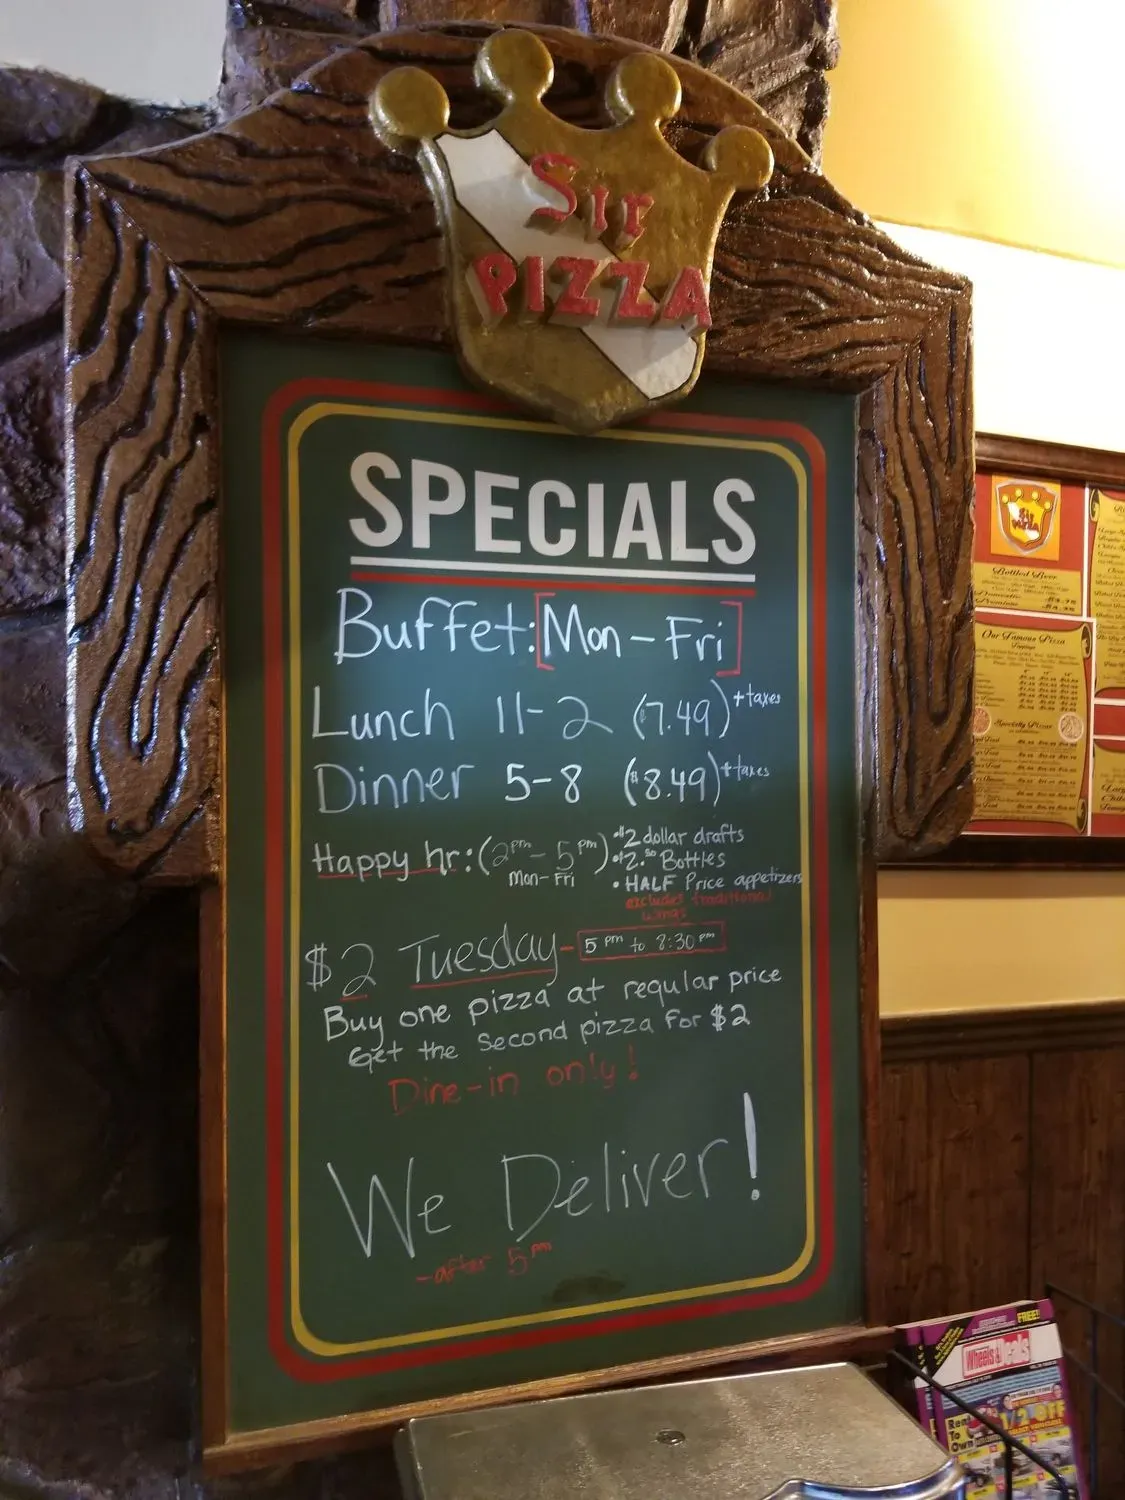 Sir
PIZZA
SPECIALS
Buffet: [Mon - Fri]
Lunch 11-2 ($7.49) + taxes
Dinner 5-8 ($8.49) + taxes
Happy hr: (2pm - 5pm)
Mon-Fri
• $2 dollar drafts
• $2.50 Bottles
• HALF Price appetizers
excludes traditional
wings
$2 Tuesday - 5pm to 8:30pm
Buy one pizza at regular price
Get the second pizza for $2
Dine-in only!
We Deliver!
- after 5pm
Sir
PIZZA
Bottled Beer
Our Famous Pizza
Toppings
Specialty Pizzas
FREE!
Wheels & Deals
Rent
To
Own
1/2 OFF